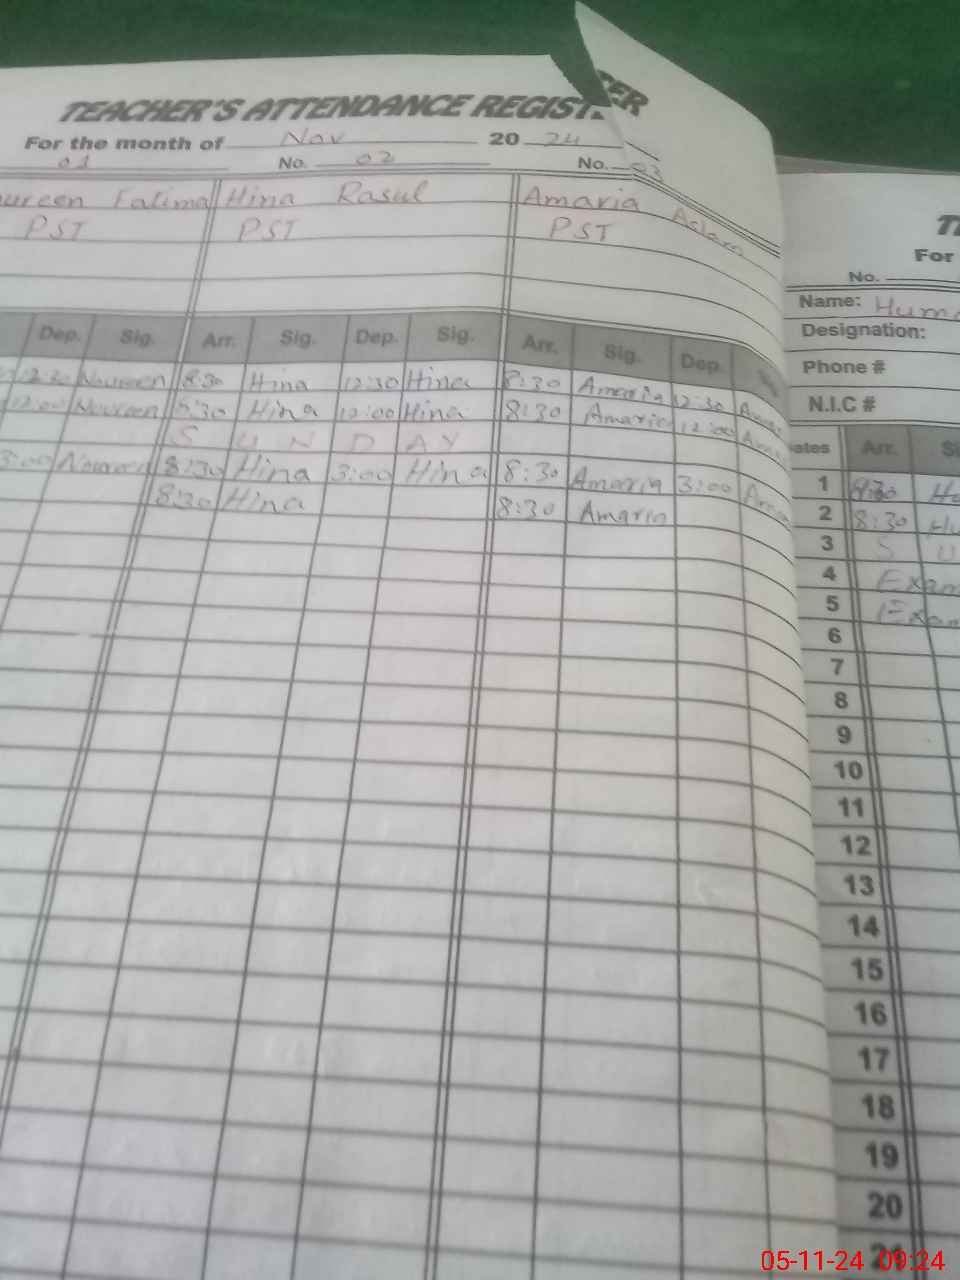 TEACHER'S ATTENDANCE REGIST
TER
For the month of Nov 2024
01 No. 02 No. 03
Fatima Hina Rasul Amaria Aslam
PST PST PST
Dep. Sig. Arr. Sig. Dep. Sig. Arr. Sig. Dep.
12:30 Noureen 8:30 Hina 12:30 Hina 8:30 Amaria 12:30
12:00 Noureen 8:30 Hina 12:00 Hina 8:30 Amaria 12:00
S U N D A Y
3:00 Noureen 8:30 Hina 3:00 Hina 8:30 Amaria 3:00
8:30 Hina 8:30 Amaria
For
No.
Name: Huma
Designation:
Phone #
N.I.C #
ates Arr.
1 8:30
2 8:30
3 S U
4 Exam
5 Exam
6
7
8
9
10
11
12
13
14
15
16
17
18
19
20
21
05-11-24 09:24